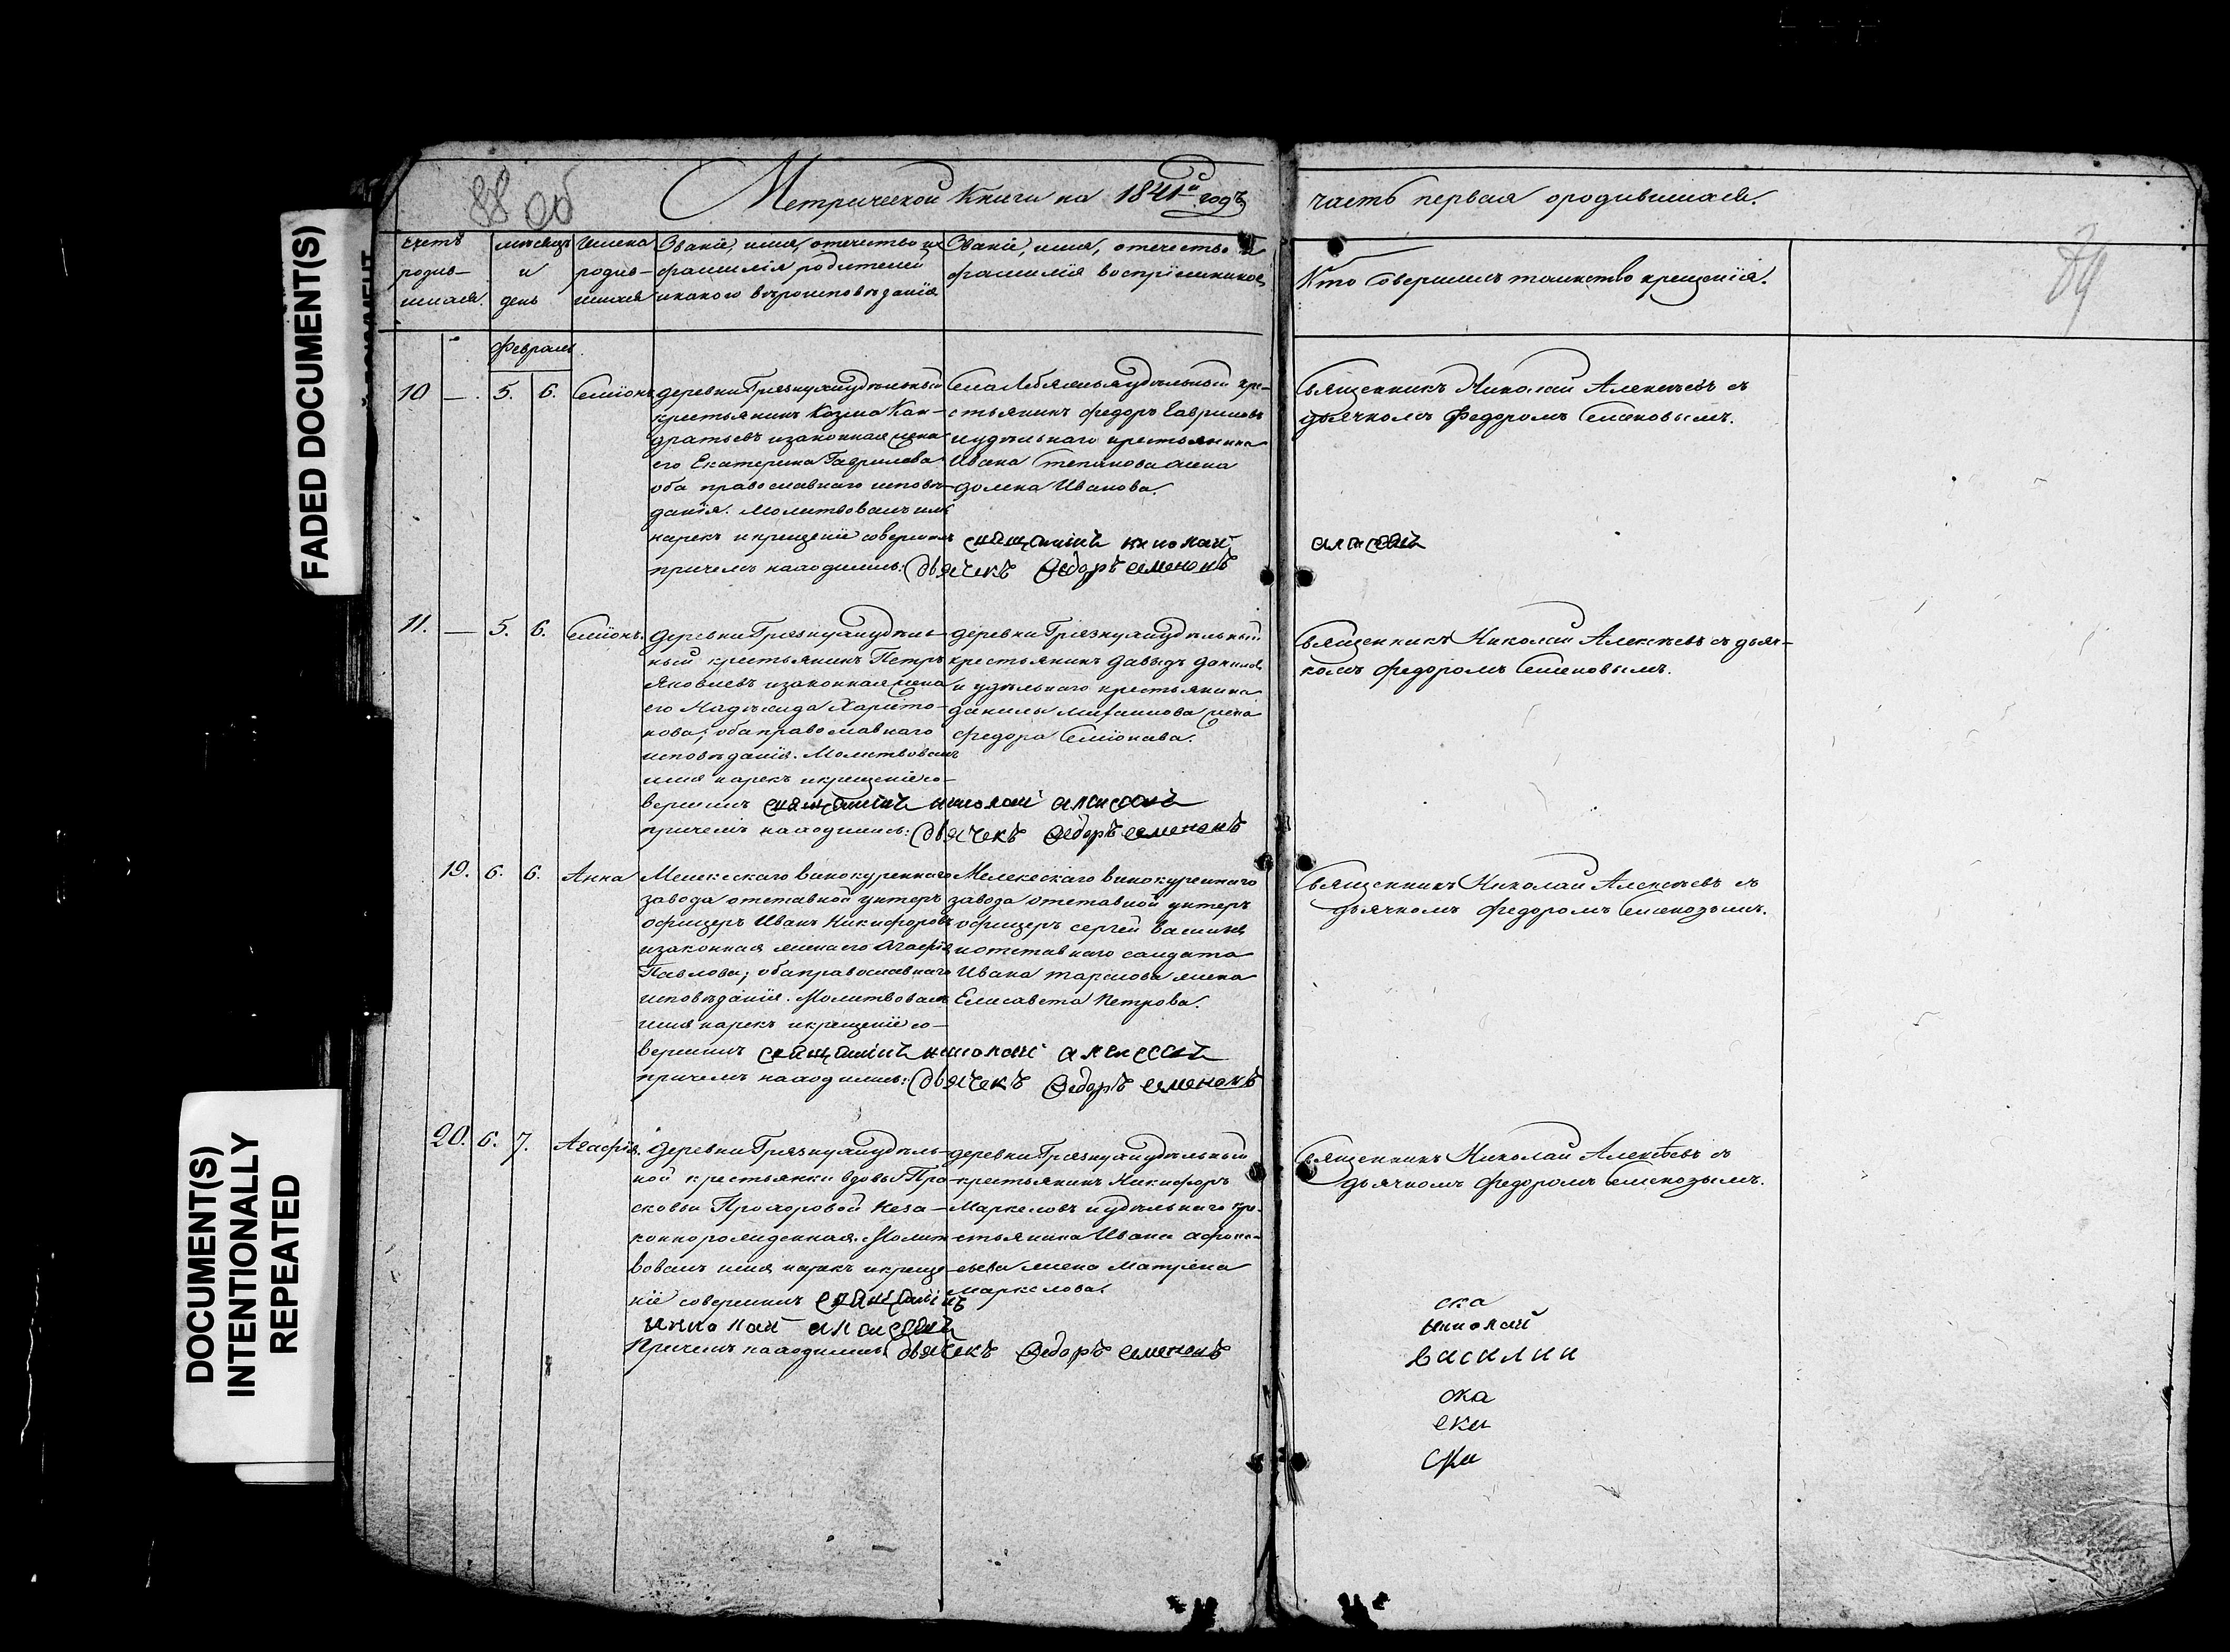 FADED DOCUMENT(S)
DOCUMENT(S)
INTENTIONALLY
REPEATED
88 об
Метрической книги на 1841й годъ
часть первая ородившихся.
89
счетъ
родив-
шихся.
мѣсяцъ
и
день
Имена
родив-
шихся
Званіе, имя, отечество и
фамилія родителей
икакого вѣроисповѣданія
Званіе, имя, отечество и
фамилія воспріемниковъ
Кто совершилъ таинство крещенія.
Февраль.
10 — 5. 6. Симіонъ
деревни Грязнухи удѣльный
крестьянинъ Козма Кан-
дратьевъ изаконная жена
его Екатерина Гаврилова
оба православнаго исповѣ-
данія. Молитвовалъ имя
нарекъ и крещеніе совершилъ священникъ николай
алексеевъ
причемъ находились: дьячекъ Федоръ семеновъ
Села Лебяжья удѣльный кре-
стьянинъ Федоръ Гавриловъ
иудѣльнаго крестьянина
Ивана Степанова жена
Домна Иванова.
Священникъ Николай Алексѣевъ съ
дьячкомъ Федоромъ Семеновымъ.
11. — 5. 6. Симіонъ.
деревни Грязнухи удѣль-
ный крестьянинъ Петръ
Яковлевъ изаконная жена
его Надѣжда Харито-
нова; оба православнаго
исповѣданія. Молитвовалъ
имя нарекъ икрещеніе со-
вершилъ священникъ николай алексеевъ
причемъ находились: дьячекъ Федоръ семеновъ
деревни Грязнухи удѣльный
крестьянинъ Давыдъ Даниловъ
и удѣльнаго крестьянина
Данилы Михаилова жена
Федора Симіонава.
Священникъ Николай Алексѣевъ съ дьяч-
комъ Федоромъ Семеновымъ.
19. 6. 6. Анна
Мелекескаго винокуреннаго
завода отставной унтеръ
офицеръ Иванъ Никифоровъ
изаконная жена его Агафія
Павлова; оба православнаго
исповѣданія. Молитвовалъ
имя нарекъ икрещеніе со-
вершилъ священникъ николай алексеевъ
причемъ находились: дьячекъ Федоръ семеновъ
Мелекескаго винокуреннаго
завода отставной унтеръ
офицеръ Сергей
иотставнаго салдата
Ивана Тарасова жена
Елисавета Петрова.
Священникъ Николай Алексѣевъ съ
дьячкомъ Федоромъ Семеновымъ.
20. 6. 7. Агафія.
деревни Грязнухи удѣль-
ной крестьянки вдовы Пра-
сковьи Прохоровой неза-
коннорожденная. Молит-
вовалъ имя нарекъ икреще-
ніе совершилъ священникъ
николай алексеевъ
Причемъ находились: дьячекъ Федоръ семеновъ
деревни Грязнухи удѣльный
крестьянинъ Никифоръ
Маркеловъ иудѣльнаго кре-
стьянина Ивана Афона-
сьева жена Матрена
Маркелова.
Священникъ Николай Алексѣевъ съ
дьячкомъ Федоромъ Семеновымъ.
ска
николай
василии
ска
еки